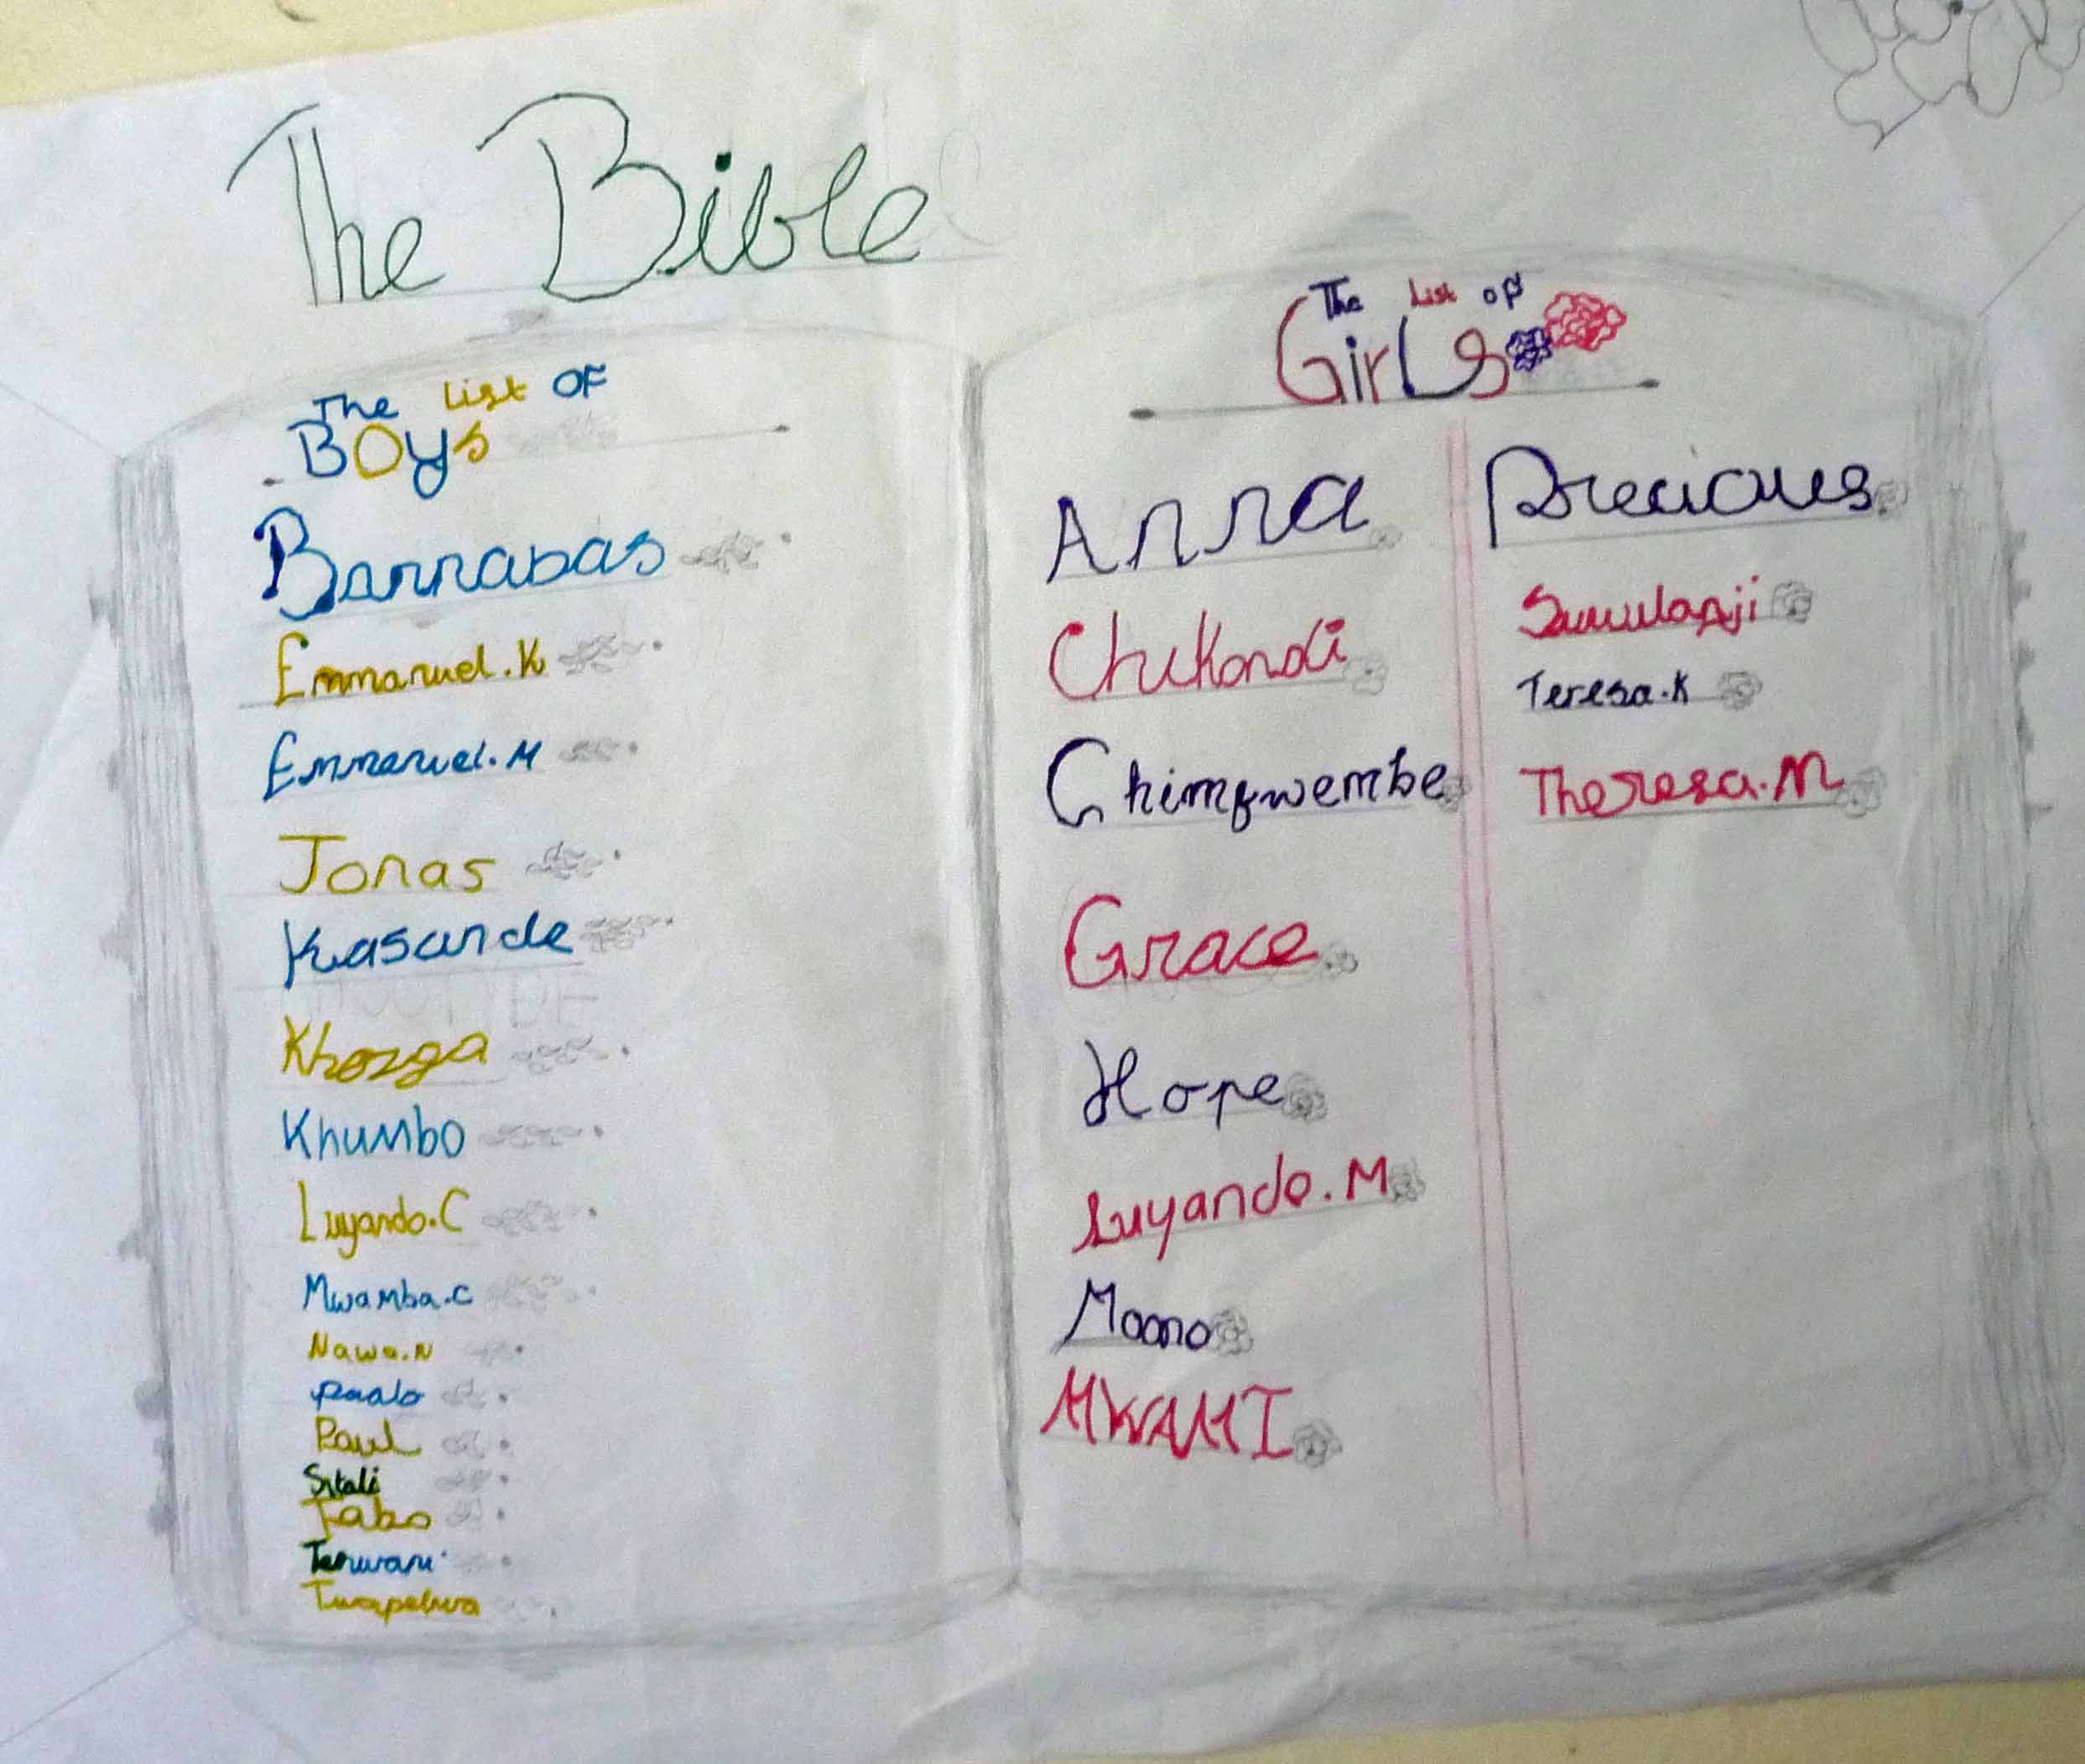 The Bible
The List OF
BOys
Barnabas
Emmanuel.K
Emmanuel.M
Jonas
Kasande
Khozga
Khumbo
Luyando.C
Mwamba.C
Nawa.N
Paalo
Paul
Sitali
Tabo
Twapelwa
The List of
GirLs
Anna
Chikondi
Chimgwembe
Grace
Hope
Luyando.M
Moono
MWAMI
Precious
Suwulanji
Teresa.K
Theresa.M